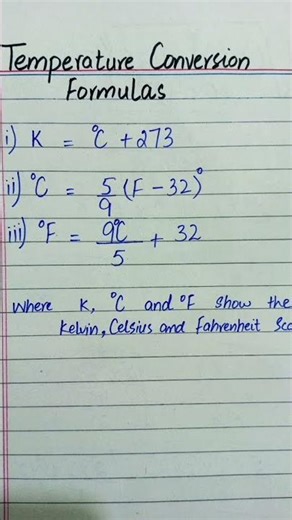 Temperature Conversion
Formulas
i) K = °C + 273
ii) °C = 5/9 (F - 32)°
iii) °F = 9°C/5 + 32
Where K, °C and °F show the
Kelvin, Celsius and Fahrenheit Sca